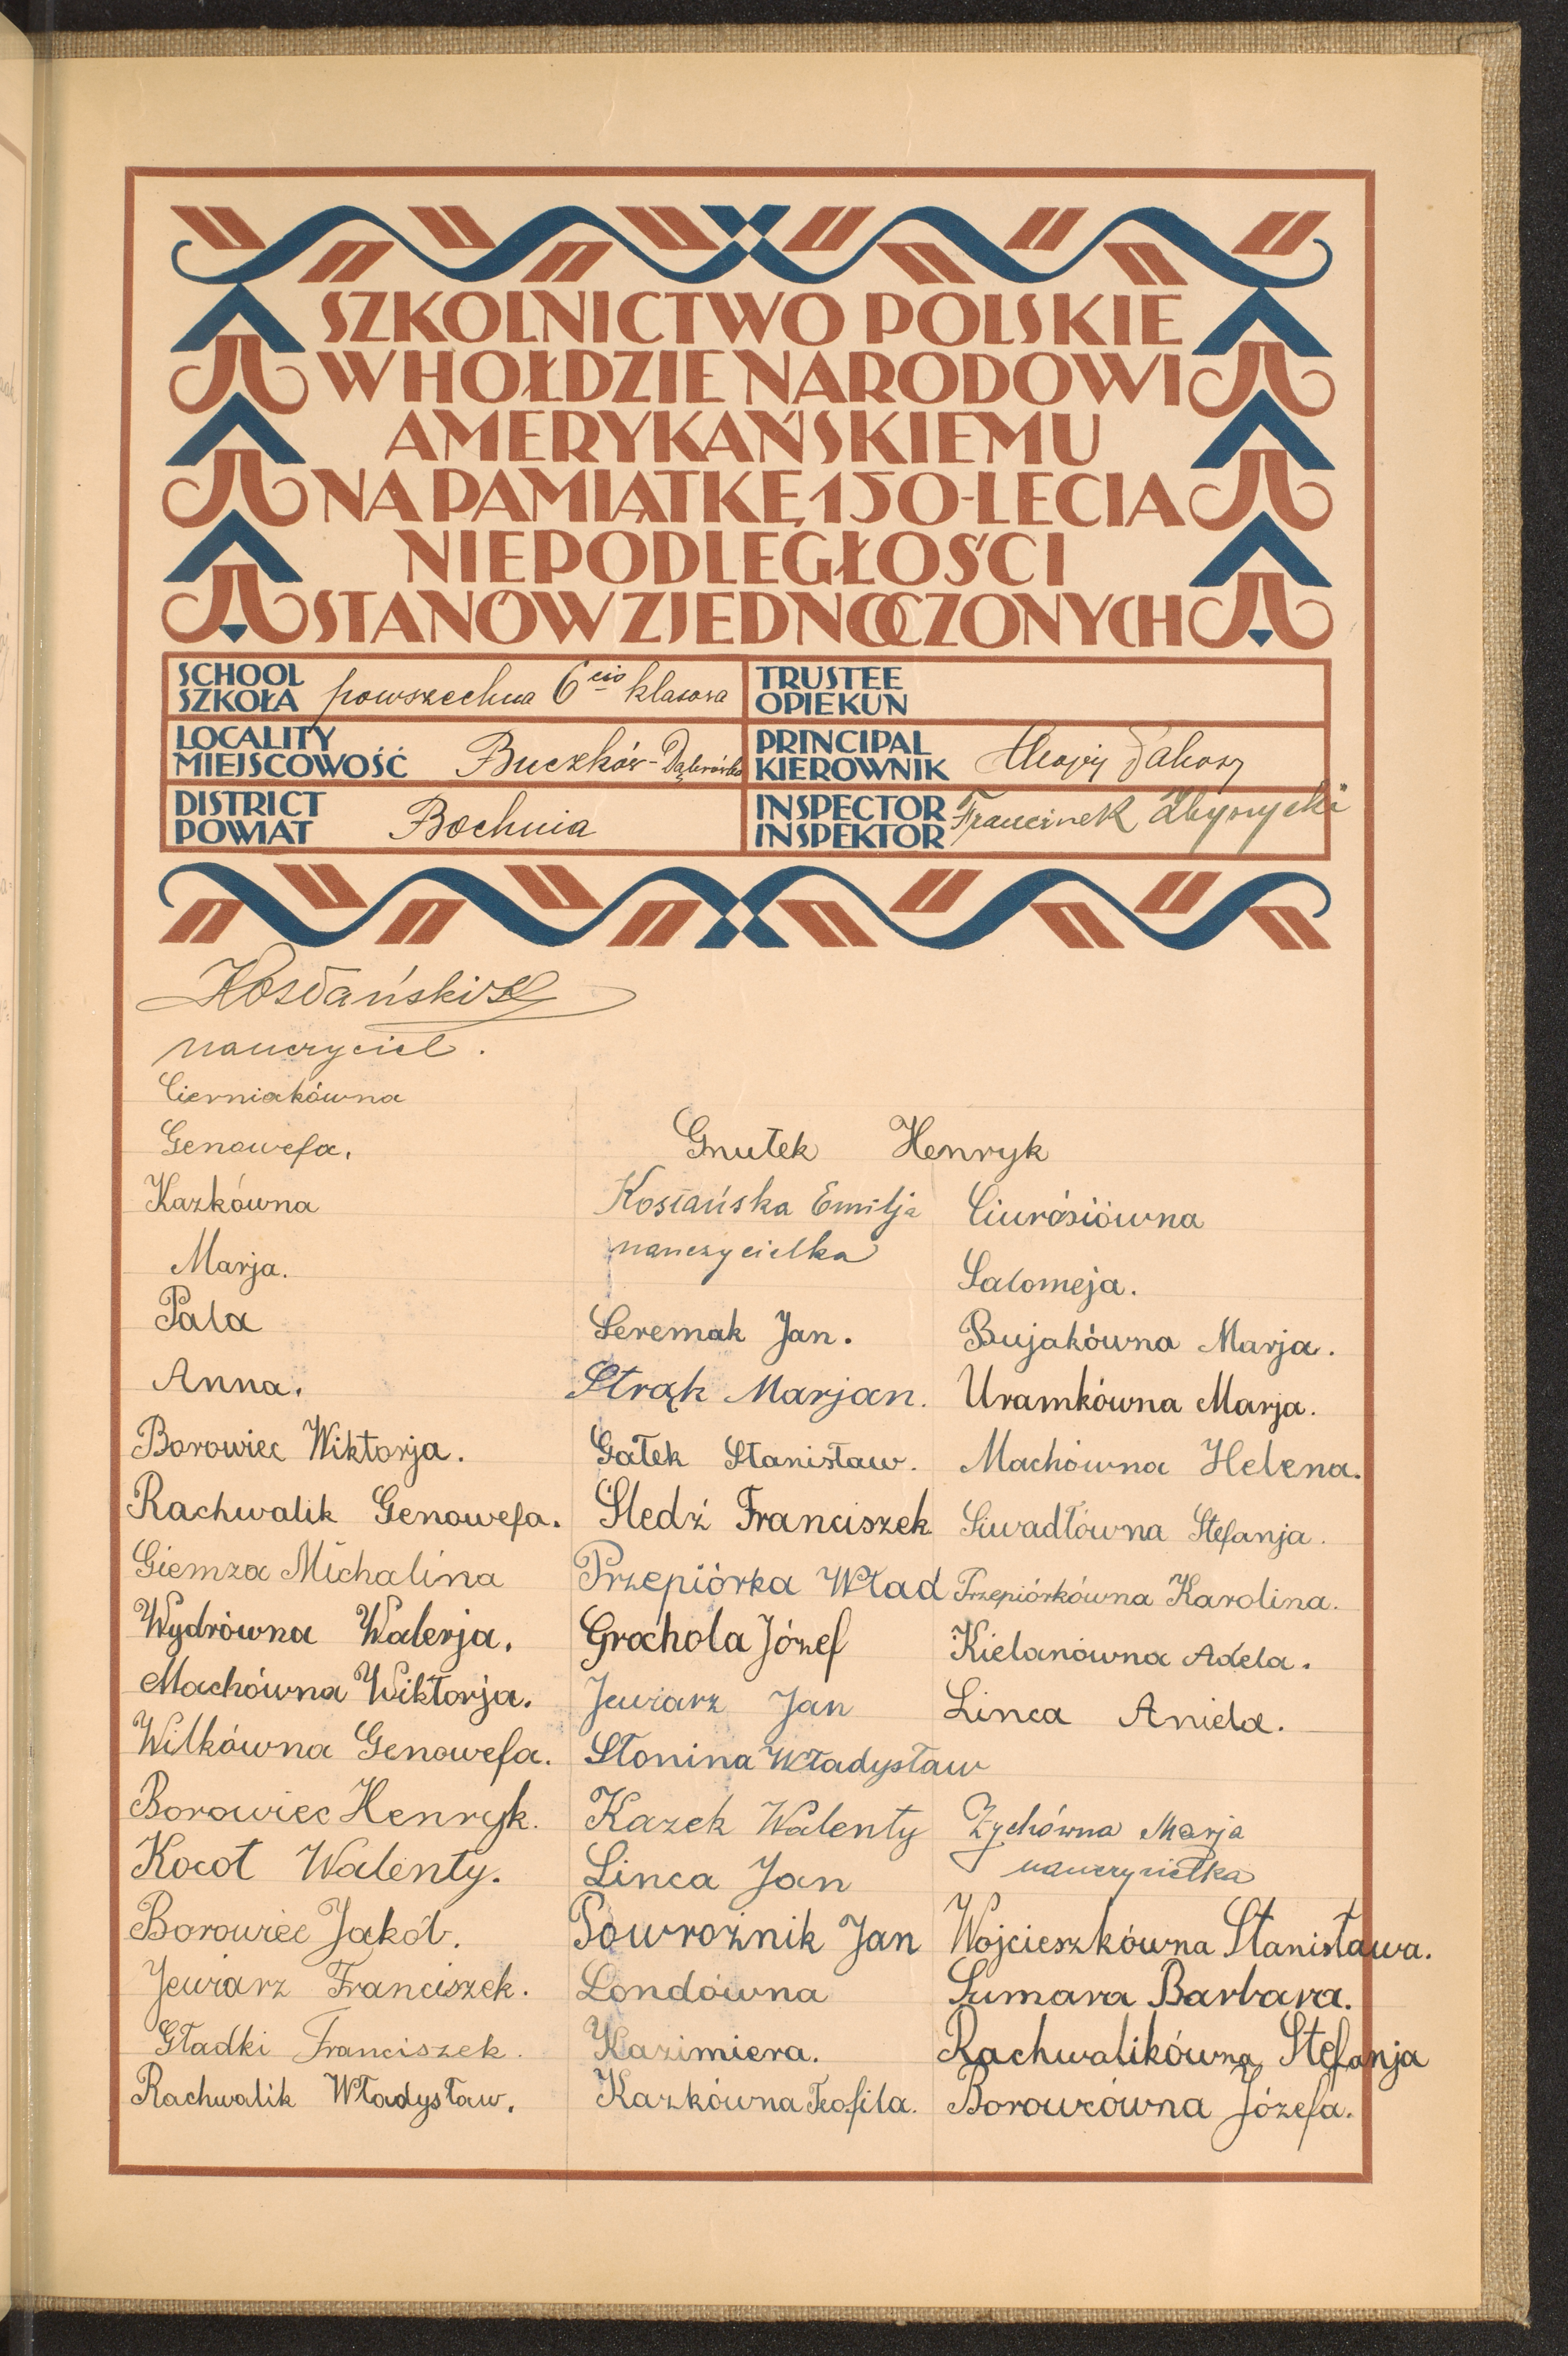 SZKOLNICTWO POLSKIE
W HOŁDZIE NARODOWI
AMERYKAŃSKIEMU
NA PAMIĄTKĘ 150-LECIA
NIEPODLEGŁOŚCI
STANÓW ZJEDNOCZONYCH
SCHOOL
SZKOŁA powszechna 6cio klasowa
TRUSTEE
OPIEKUN
LOCALITY
MIEJSCOWOŚĆ Buczków-Dąbrówka
PRINCIPAL
KIEROWNIK
DISTRICT
POWIAT Bochnia
INSPECTOR
INSPEKTOR Franciszek
Kosłański
nauczyciel.
Cierniakówna
Genowefa.
Kazkówna
Marja.
Pala
Anna.
Borowiec Wiktorja.
Rachwalik Genowefa.
Giemza Michalina
Wydrówna Walerja.
Machówna Wiktorja.
Wilkówna Genowefa.
Borowiec Henryk.
Kocot Walenty.
Borowiec Jakób.
Jewiarz Franciszek.
Gładki Franciszek.
Rachwalik Władysław.
Gnutek Henryk
Kosłańska Emilja
nauczycielka
Seremak Jan.
Strąk Marjan.
Gałek Stanisław.
Śledź Franciszek
Przepiórka Wład
Grochola Józef
Jewiarz Jan
Słonina Władysław
Kazek Walenty
Linca Jan
Powroźnik Jan
Londówna
Kazimiera.
Kazkówna Teofila.
Ciurósiówna
Salomeja.
Bujakówna Marja.
Uramkówna Marja.
Machówna Helena.
Siwadłówna Stefanja.
Przepiórkówna Karolina.
Kielanówna Adela.
Linca Aniela.
Zychówna Marja
nauczycielka
Wojcieszkówna Stanisława.
Sumara Barbara.
Rachwalikówna Stefanja
Borowcówna Józefa.